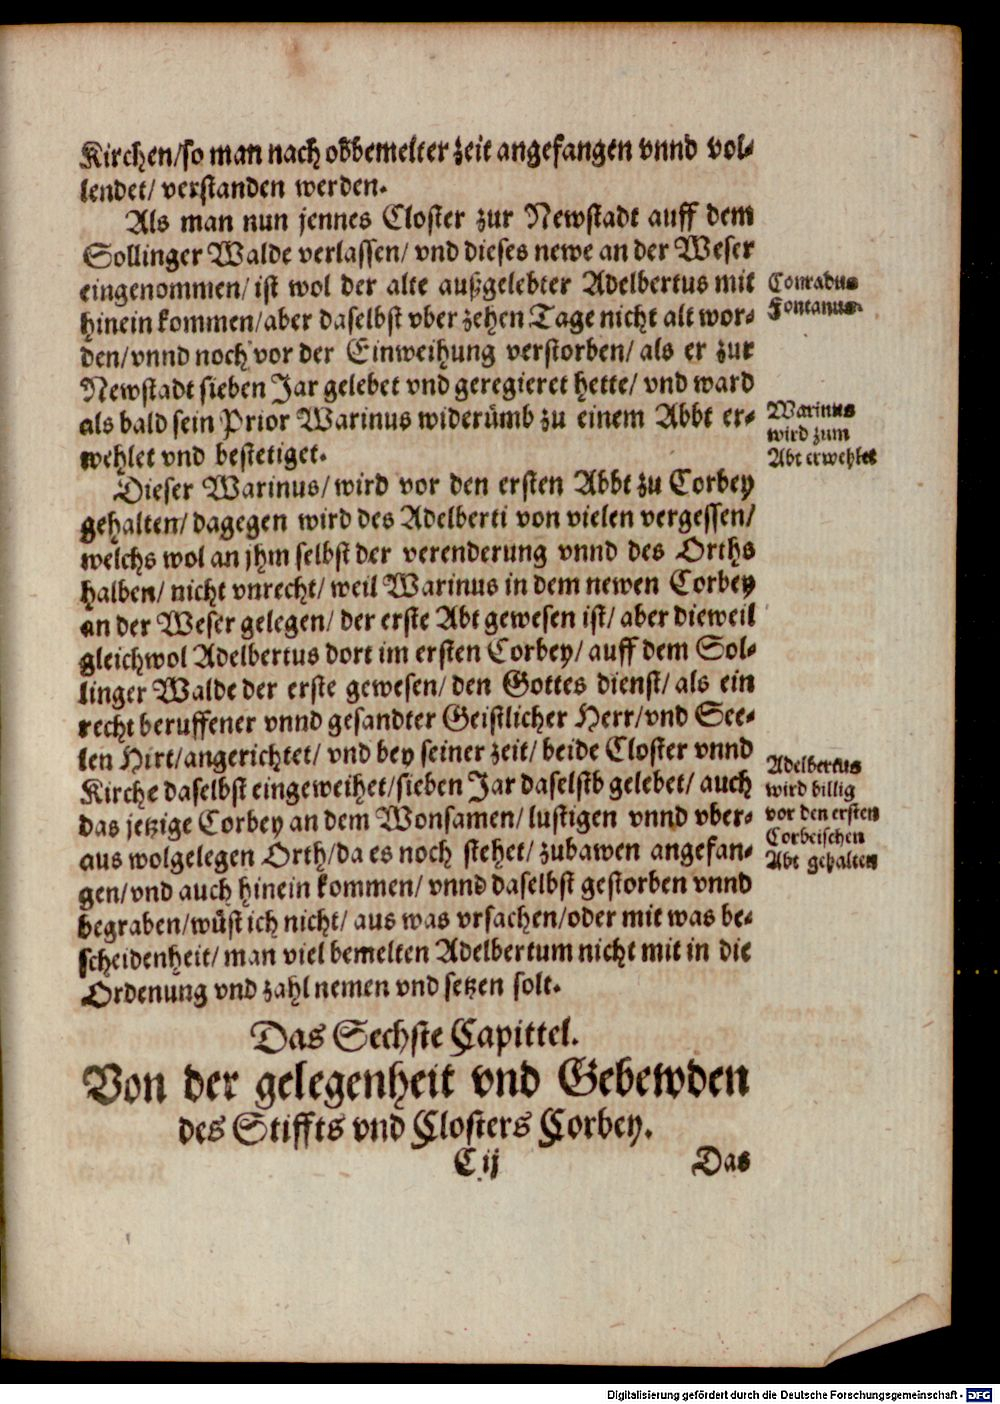 Kirchen/so man nach obbemelter zeit angefangen vnnd vol-
lendet/ verstanden werden.
Als man nun jennes Closter zur Newstadt auff dem
Sollinger Walde verlassen/ vnd dieses newe an der Weser
eingenommen/ ist wol der alte außgelebter Adelbertus mit
hinein kommen/aber daselbst vber zehen Tage nicht alt wor-
den/vnnd noch vor der Einweihung verstorben/ als er zur
Newstadt sieben Jar gelebet vnd geregieret hette/ vnd ward
als bald sein Prior Warinus widerümb zu einem Abbt er-
wehlet vnd bestetiget.
Conradus
Fontanus.
Warinus
wird zum
Abt erwehlet
Dieser Warinus/ wird vor den ersten Abbt zu Corbey
gehalten/ dagegen wird des Adelberti von vielen vergessen/
welchs wol an jhm selbst der verenderung vnnd des Orths
halben/ nicht vnrecht/ weil Warinus in dem newen Corbey
an der Weser gelegen/ der erste Abt gewesen ist/ aber dieweil
gleichwol Adelbertus dort im ersten Corbey/ auff dem Sol-
linger Walde der erste gewesen/ den Gottes dienst/ als ein
recht beruffener vnnd gesandter Geistlicher Herr/vnd See-
len Hirt/angerichtet/ vnd bey seiner zeit/ beide Closter vnnd
Kirche daselbst eingeweihet/sieben Jar daselstb gelebet/ auch
das jetzige Corbey an dem Wonsamen/ lustigen vnnd vber-
aus wolgelegen Orth/da es noch stehet/ zubawen angefan-
gen/vnd auch hinein kommen/ vnnd daselbst gestorben vnnd
begraben/wüst ich nicht/ aus was vrsachen/oder mit was be-
scheidenheit/ man viel bemelten Adelbertum nicht mit in die
Ordenung vnd zahl nemen vnd setzen solt.
Adelbertus
wird billig
vor den ersten
Corbeischen
Abt gehalten
Das Sechste Capittel.
Von der gelegenheit vnd Gebewden
des Stiffts vnd Closters Corbey.
C ij
Das
Digitalisierung gefördert durch die Deutsche Forschungsgemeinschaft - DFG